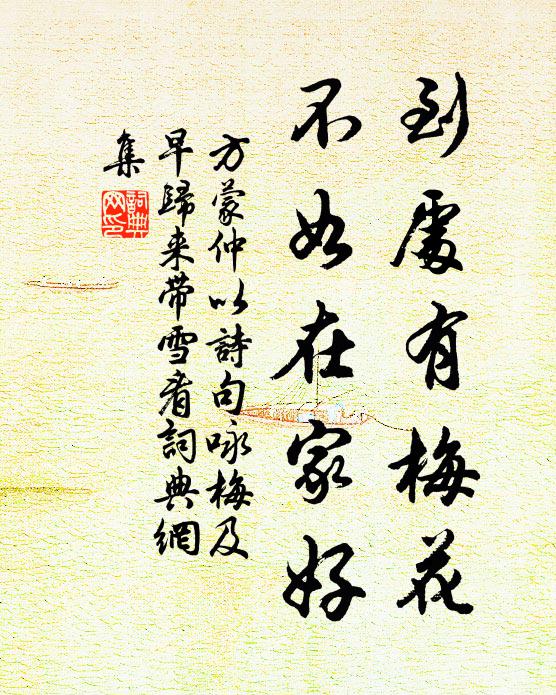 到處有梅花
不如在家好
方蒙仲以詩句咏梅及
早歸来带雪看詞典網
集
詞典
网印